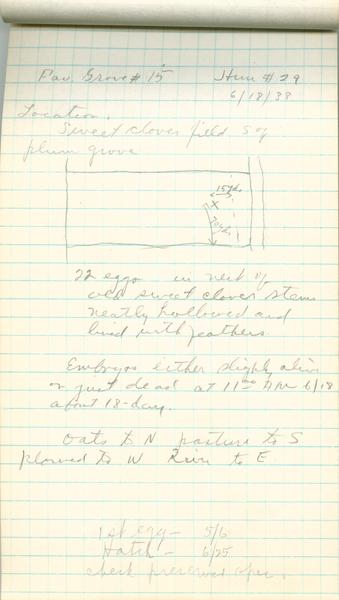 Pav. Grove # 15 Hun # 29
6/18/38
Location.
Sweet clover field S of
plum grove
15 yds
X
70 yds
22 eggs in nest of
old sweet clover stems
neatly hollowed and
lined with feathers.
Embryos either slightly alive
or just dead at 11:00 AM 6/18
about 18-day.
Oats to N pasture to S
plowed to W River to E
1st egg - 5/6
Hatch - 6/25
check preserved spec.